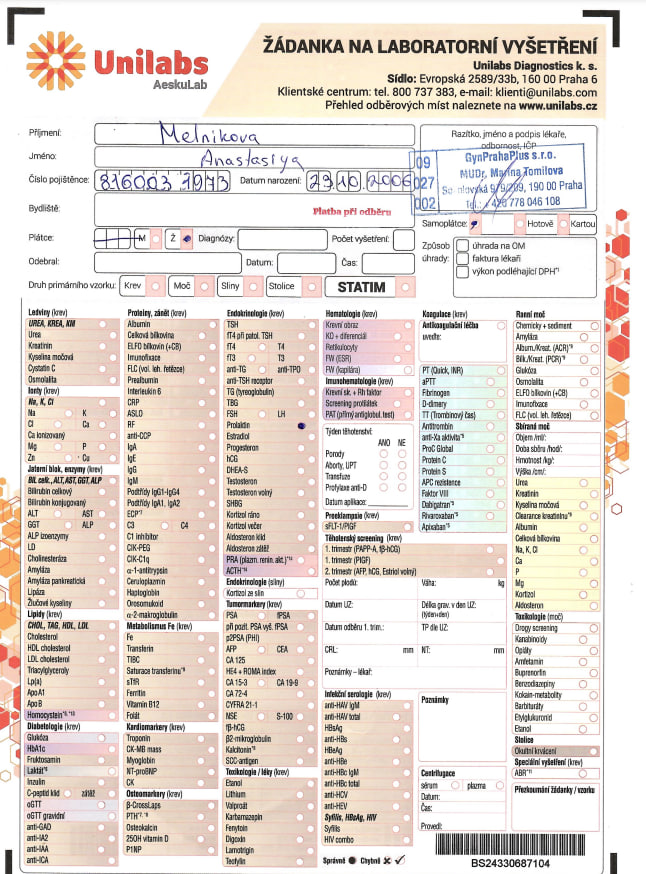 Unilabs
AeskuLab
ŽÁDANKA NA LABORATORNÍ VYŠETŘENÍ
Unilabs Diagnostics k. s.
Sídlo: Evropská 2589/33b, 160 00 Praha 6
Klientské centrum: tel. 800 737 383, e-mail: klienti@unilabs.com
Přehled odběrových míst naleznete na www.unilabs.cz
Příjmení: Melnikova
Jméno: Anastasiya
Číslo pojištěnce: Datum narození: 23.10.2006
Bydliště: Platba při odběru
Razítko, jméno a podpis lékaře,
odbornost, IČP
09 GynPrahaPlus s.r.o.
027 MUDr. Marina Tomilova
002 9/209, 190 00 Praha
Tel.: +420 778 046 108
Plátce: M Ž Diagnózy: Počet vyšetření:
Samoplátce: Hotově Kartou
Odebral: Datum: Čas:
Způsob úhrady:
úhrada na OM
faktura lékaři
výkon podléhající DPH*¹
Druh primárního vzorku: Krev Moč Sliny Stolice STATIM
Ledviny (krev)
UREA, KREA, KM
Urea
Kreatinin
Kyselina močová
Cystatin C
Osmolalita
Ionty (krev)
Na, K, Cl
Na K
Cl Ca
Ca ionizovaný
Mg P
Zn Cu
Jaterní blok, enzymy (krev)
BIL celk., ALT, AST, GGT, ALP
Bilirubin celkový
Bilirubin konjugovaný
ALT AST
GGT ALP
ALP izoenzymy
LD
Cholinesteráza
Amyláza
Amyláza pankreatická
Lipáza
Žlučové kyseliny
Lipidy (krev)
CHOL, TAG, HDL, LDL
Cholesterol
HDL cholesterol
LDL cholesterol
Triacylglyceroly
Lp(a)
Apo A1
Apo B
Homocystein
Diabetologie (krev)
Glukóza
HbA1c
Fruktosamin
Laktát
Inzulin
C-peptid kód zátěž
oGTT
oGTT gravidní
anti-GAD
anti-IA2
anti-IAA
anti-ICA
Proteiny, zánět (krev)
Albumin
Celková bílkovina
ELFO bílkovin (+CB)
Imunofixace
FLC (vol. leh. řetězce)
Prealbumin
Interleukin 6
CRP
ASLO
RF
anti-CCP
IgA
IgE
IgG
IgM
Podtřídy IgG1-IgG4
Podtřídy IgA1, IgA2
ECP
C3 C4
C1 inhibitor
CIK-PEG
CIK-C1q
α-1-antitrypsin
Ceruloplazmin
Haptoglobin
Orosomukoid
α-2-makroglobulin
Metabolismus Fe (krev)
Fe
Transferin
TIBC
Saturace transferinu
sTfR
Ferritin
Vitamin B12
Folát
Kardiomarkery (krev)
Troponin
CK-MB mass
Myoglobin
NT-proBNP
CK
Osteomarkery (krev)
β-CrossLaps
PTH
Osteokalcin
25OH vitamin D
P1NP
Endokrinologie (krev)
TSH
fT4 při patol. TSH
fT4 T4
fT3 T3
anti-TG anti-TPO
anti-TSH receptor
TG (tyreoglobulin)
TBG
FSH LH
Prolaktin
Estradiol
Progesteron
hCG
DHEA-S
Testosteron
Testosteron volný
SHBG
Kortizol ráno
Kortizol večer
Aldosteron klid
Aldosteron zátěž
PRA (plazm. renin. akt.)
ACTH
Endokrinologie (sliny)
Kortizol ze slin
Tumormarkery (krev)
PSA fPSA
při pozit. PSA vyš. fPSA
p2PSA (PHI)
AFP CEA
CA 125
HE4 + ROMA index
CA 15-3 CA 19-9
CA 72-4
CYFRA 21-1
NSE S-100
fβ-hCG
β2-mikroglobulin
Kalcitonin
SCC-antigen
Toxikologie / léky (krev)
Etanol
Lithium
Valproát
Karbamazepin
Fenytoin
Digoxin
Lamotrigin
Teofylin
Hematologie (krev)
Krevní obraz
KO + diferenciál
Retikulocyty
FW (ESR)
FW (kapilára)
Imunohematologie (krev)
Krevní sk. + Rh faktor
Screening protilátek
PAT (přímý antiglobul. test)
Týden těhotenství:
ANO NE
Porody
Aborty, UPT
Transfuze
Profylaxe anti-D
Datum aplikace:
Preeklampsie (krev)
sFLT-1/PlGF
Těhotenský screening (krev)
1. trimestr (PAPP-A, fβ-hCG)
1. trimestr (PlGF)
2. trimestr (AFP, hCG, Estriol volný)
Počet plodů: Váha: kg
Datum UZ: Délka grav. v den UZ: (týden+den)
Datum odběru 1. trim.: TP dle UZ:
CRL: mm NT: mm
Poznámky – lékař:
Infekční serologie (krev)
anti-HAV IgM
anti-HAV total
HBsAg
anti-HBs
HBeAg
anti-HBe
anti-HBc IgM
anti-HBc total
anti-HCV
anti-HEV
Syfilis, HBsAg, HIV
Syfilis
HIV combo
Správně Chybně
Koagulace (krev)
Antikoagulační léčba
uveďte:
PT (Quick, INR)
aPTT
Fibrinogen
D-dimery
TT (Trombinový čas)
Antitrombin
anti-Xa aktivita
ProC Global
Protein C
Protein S
APC rezistence
Faktor VIII
Dabigatran
Rivaroxaban
Apixaban
Poznámky
Centrifugace
sérum plazma
Datum:
Čas:
Provedl:
Ranní moč
Chemicky + sediment
Amyláza
Album./Kreat. (ACR)
Bílk./Kreat. (PCR)
Glukóza
Osmolalita
ELFO bílkovin (+CB)
Imunofixace
FLC (vol. leh. řetězce)
Sbíraná moč
Objem /ml/:
Doba sběru /hod/:
Hmotnost /kg/:
Výška /cm/:
Urea
Kreatinin
Kyselina močová
Clearance kreatininu
Albumin
Celková bílkovina
Na, K, Cl
Ca
P
Mg
Kortizol
Aldosteron
Toxikologie (moč)
Drogy screening
Kanabinoidy
Opiáty
Amfetamin
Buprenorfin
Benzodiazepiny
Kokain-metabolity
Barbituráty
Etylglukuronid
Etanol
Stolice
Okultní krvácení
Speciální vyšetření (krev)
ABR
Přezkoumání žádanky / vzorku
BS24330687104